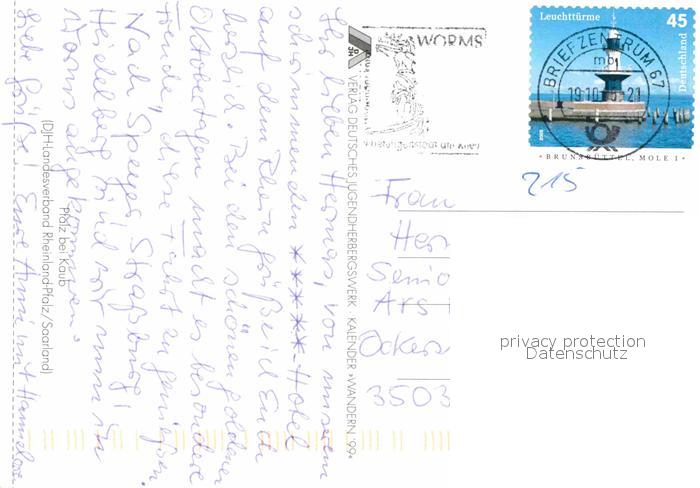 Ihr lieben Hermas, von unserem
schwimmenden ****-Hotel
auf dem Rhein grüße ich Euch
herzl. Bei den schönen goldenen
Oktobertagen macht es besondere
Freude, diese Fahrt zu genießen.
Nach Speyer, Straßburg,
Heidelberg sind wir nun in
Worms angekommen.
Liebe Grüße! Eure Anni mit Hannelore
Pfalz bei Kaub
(DJH-Landesverband Rheinland-Pfalz/Saarland)
VERLAG DEUTSCHES JUGENDHERBERGSWERK KALENDER »WANDERN '99«
WORMS
Leuchttürme
45
Deutschland
BRIEFZENTRUM 67
mb
19.10
21
BRUNSBÜTTEL, MOLE 1
215
Frau
Her
Senio
Ars
Ockers
3503
privacy protection
Datenschutz